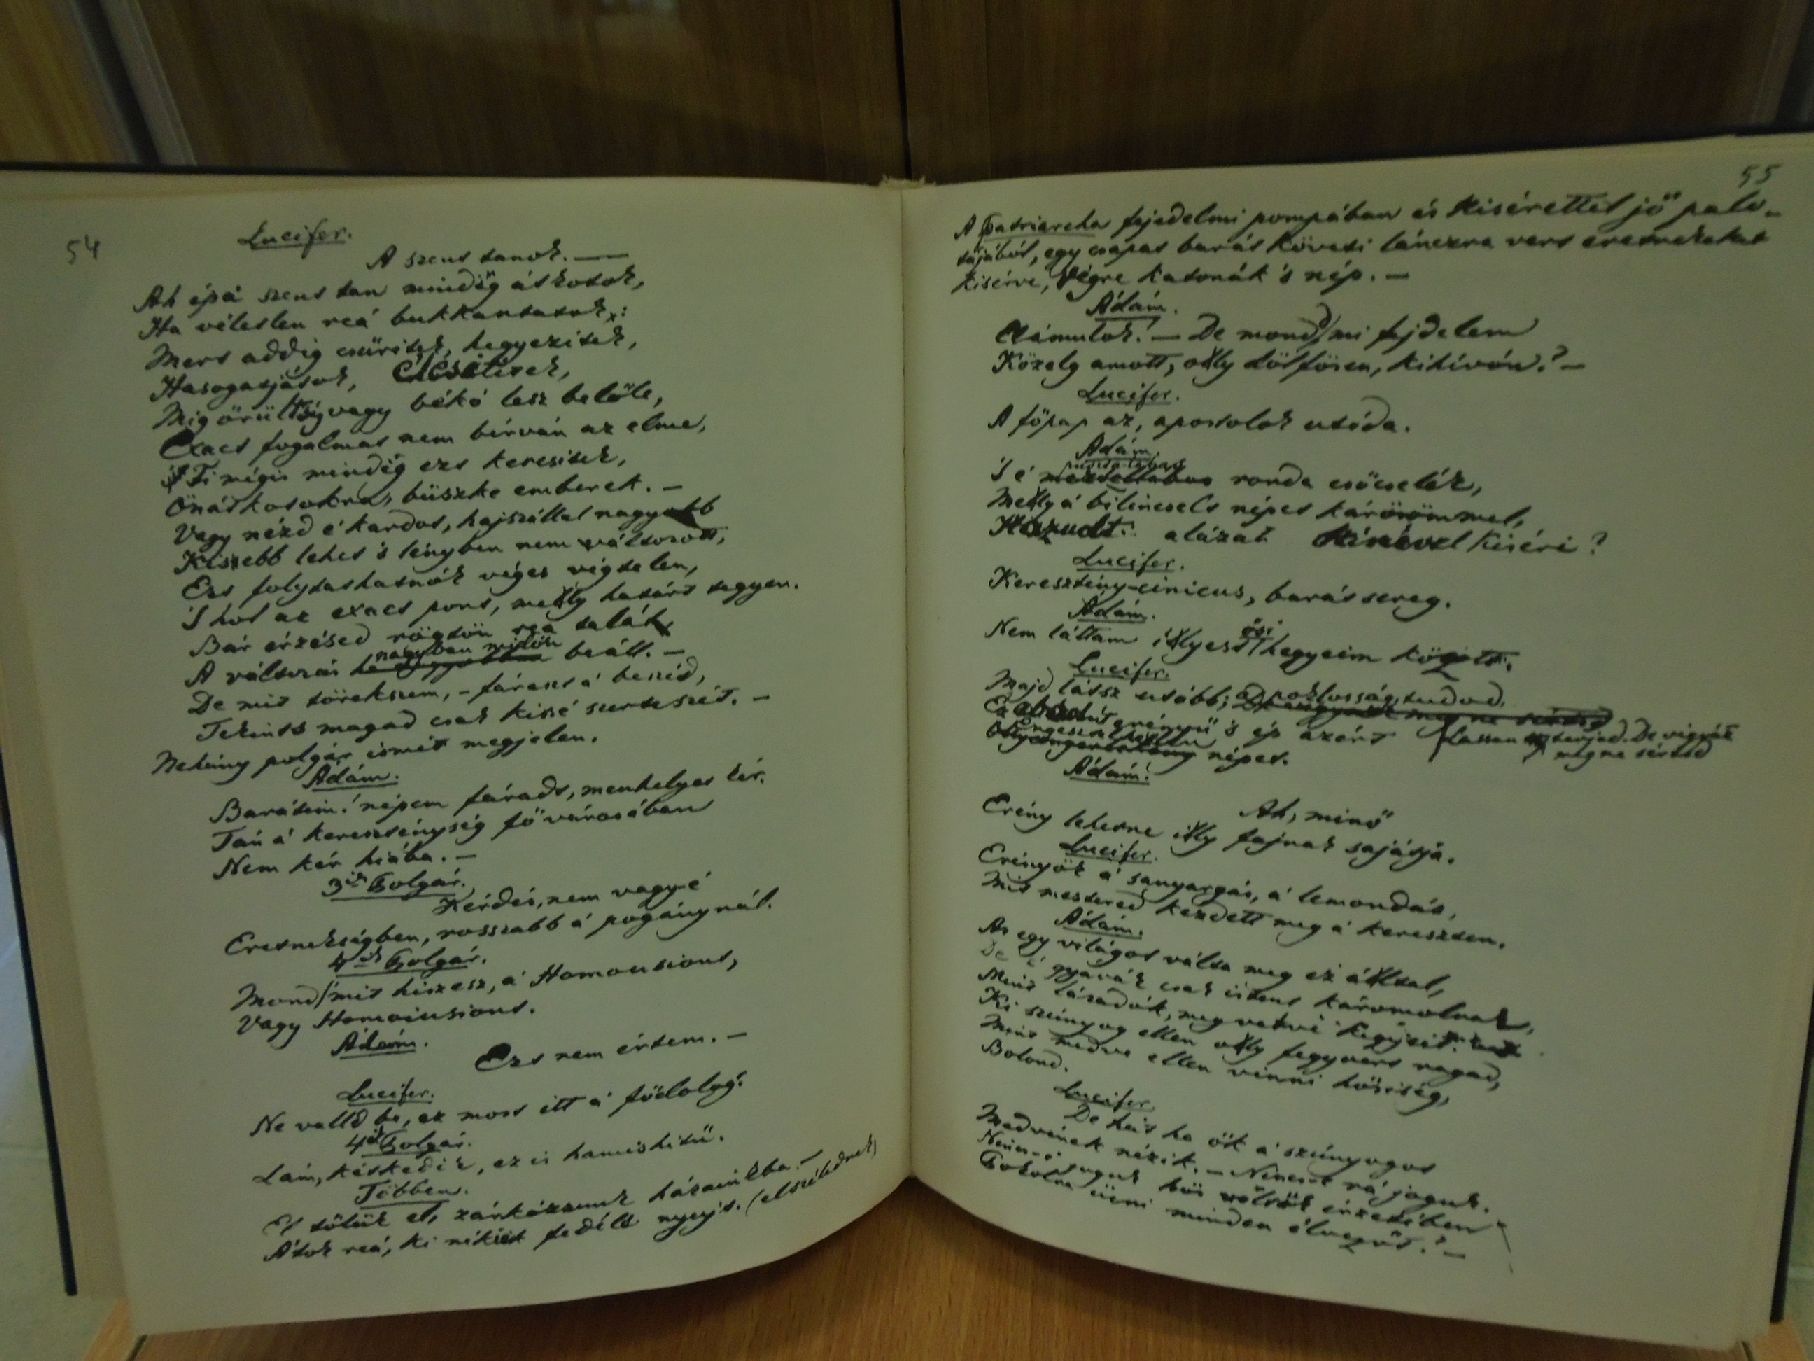 54
Lucifer.
A szent tanok. —
Ah épá szent tan mindég átkotok,
Ha véletlen reá bukkantatok:
Mert addig csűritek, hegyezitek,
Hasogatjátok, élesítitek,
Mig őrültség vagy békó lesz belőle,
Exact fogalmat nem bírván az elme,
Ti mégis mindég ezt keresitek,
Önátkotokra, büszke emberek. —
Vagy nézd é kardot, hajszállal nagyobb
Kisebb lehet 's lényben nem változott,
Ezt folytathatnók véges végtelen,
'S hol az exact pont, melly határt tegyen.
Bár érzésed rögtön reá talál,
A változás nagyban midőn beáll. —
De mit törekszem, – fáraszt á beszéd,
Tekints magad csak kissé szerteszét. —
Nehány polgár ismét megjelen.
Ádám.
Barátim! népem fáradt, menhelyet kér.
Tán á kereszténység fő városában
Nem kér hiába. —
3ik Polgár.
Kérdés, nem vagy-é
Eretnekségben, rosszabb á pogánynál.
4ik Polgár.
Mond/mit hiszesz, á Homousiont,
Vagy Homoiusiont.
Ádám.
Ezt nem értem. —
Lucifer.
Ne valld be, ez most itt á fődolog.
4ik Polgár.
Lám, kétkedik, ez is hamishitű.
Többen.
El tőlük el, zárkózzunk házainkba. —
Átok reá, ki nékik fedélt nyujt. (elszélednek)
55
A Patriarcha fejedelmi pompában és kisérettel jő palo-
tájából, egy csapat barát követi lánczra vert eretnekeket
kisérve, végre katonák 's nép. —
Ádám.
Elámulok! — De mond/mi fejdelem
Közelg amott, olly dölfösen, kihívón? —
Lucifer.
A főpap az, apostolok utóda.
Ádám.
'S é mezitlábos ronda csőcselék,
Melly á bilincselt népet kárörömmel,
Hazudt alázat színével kiséri?
Lucifer.
Keresztény-cinicus, barát sereg.
Ádám.
Nem láttam illyest ősi hegyeim között.
Lucifer.
Majd látsz utóbb; á poklosság, tudod,
Lassan terjed. De vigyázz
meg ne sértsd
Engesztelhetlen népet.
Ádám.
Ah, minő
Erény lehetne illy fajnak sajátja.
Lucifer.
Erényök á sanyargás, á lemondás,
Mit mestered kezdett meg á kereszten.
Ádám.
Az egy világot válta meg ez által,
De é gyávák csak istent káromolnak,
Mint lázadók, megvetvé kegyeit.
Ki szúnyog ellen olly fegyvert ragad,
Mint medve ellen vinni hősiség,
Bolond.
Lucifer.
De hát ha ők á szúnyogot
Medvének nézik. — Nincsen rá joguk.
Nem-é jogok hős voltok érzetében
Pokolra űzni minden élvezőt? —